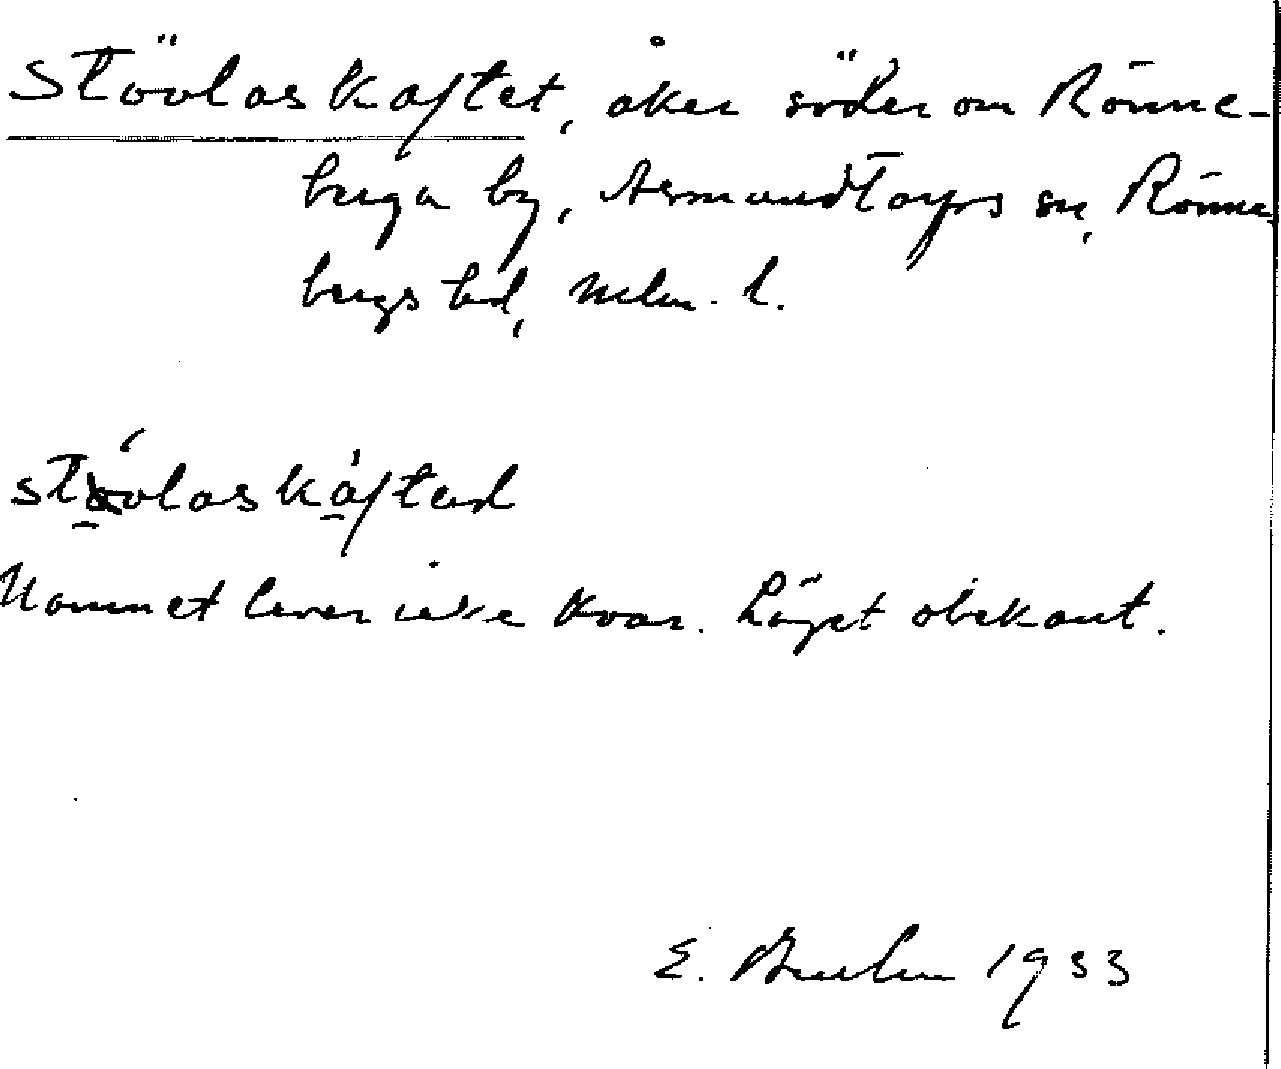 Stövlaskaftet, åker söder om Rönne-
berga by, Asmundtorps sn, Rönne
bergs hd, Mlm. l.
stövlaskáftəd
Namnet lever icke kvar. Läget obekant.
E. 1933